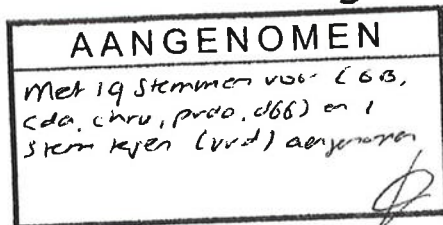 AANGENOMEN
Met 19 stemmen voor (GB,
cda, chru, prdo, d66) en 1
stem tegen (vvd) aangenomen